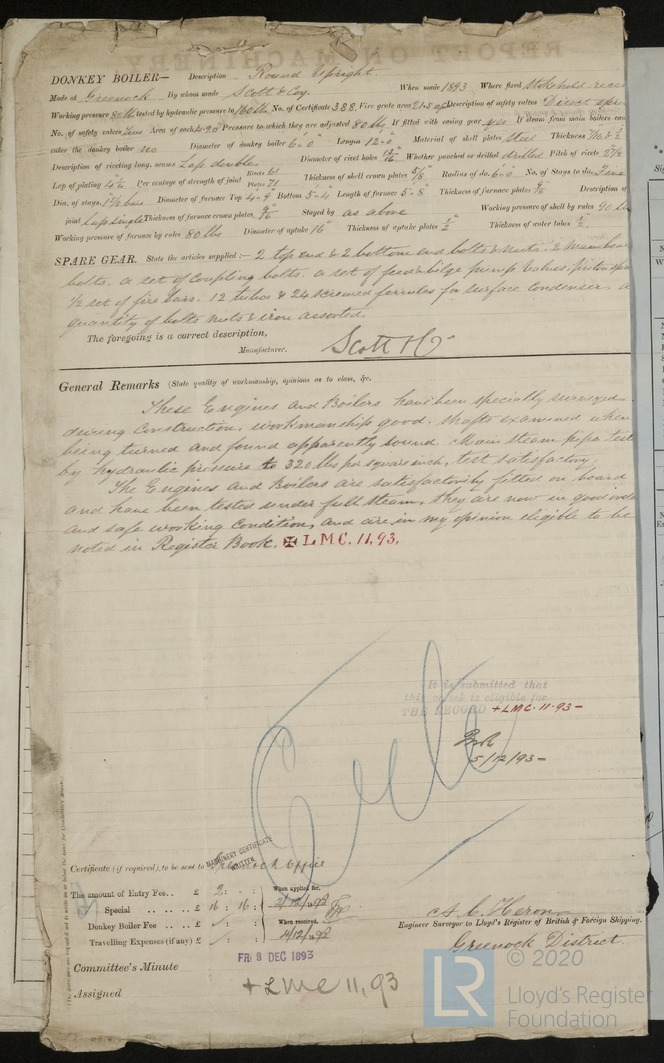 DONKEY BOILER— Description Round Upright
Made at Greenock By whom made Scott & Coy. When made 1893 Where fixed Stokehold
Working pressure 80 lbs tested by hydraulic pressure to 160 lbs No. of Certificate 388. Fire grate area 21.5 Description of safety valves Direct
No. of safety valves Two Area of each Pressure to which they are adjusted 80 lbs If fitted with easing gear yes If steam from main boilers can
enter the donkey boiler no Diameter of donkey boiler 6'-0" Length 12'-0" Material of shell plates Steel Thickness
Description of riveting long. seams Lap double Diameter of rivet holes Whether punched or drilled drilled Pitch of rivets
Lap of plating Per centage of strength of joint Rivets Plates 71 Thickness of shell crown plates Radius of do. 6'-0" No. of Stays to do.
Dia. of stays. Diameter of furnace Top 4'-9" Bottom 5'-4" Length of furnace 5'-8" Thickness of furnace plates Description of
joint Lap single Thickness of furnace crown plates Stayed by as above Working pressure of shell by rules 90 lbs
Working pressure of furnace by rules 80 lbs Diameter of uptake 16" Thickness of uptake plates ½" Thickness of water tubes ½"
SPARE GEAR. State the articles supplied:— 2 top end & 2 bottom end bolts & nuts. 2 Main
bolts. a set of coupling bolts. a set of feed & bilge pump valves.
½ set of fire bars. 12 tubes & 24 screwed ferrules for surface condenser. a
quantity of bolts nuts & iron assorted.
The foregoing is a correct description,
Manufacturer. Scott & Co
General Remarks (State quality of workmanship, opinions as to class, &c.
These Engines and Boilers have been specially surveyed
during construction. workmanship good. shafts examined when
being turned and found apparently sound. Main steam pipes
by hydraulic pressure to 320 lbs per square inch, test satisfactory.
The Engines and Boilers are satisfactorily fitted on board
and have been tested under full steam, they are now in good order
and safe working condition, and are in my opinion eligible to be
noted in Register Book. ✠ L.M.C. 11.93.
It is submitted that
this vessel is eligible for
THE RECORD +LMC. 11.93-
5/12/93-
Certificate (if required), to be sent to Greenock Office
MACHINERY CERTIFICATE WRITTEN.
The amount of Entry Fee.. £ 2 : - : When applied for,
Special .. .. .. £ 16 : 16 :
Donkey Boiler Fee .. .. £ When received,
Travelling Expenses (if any) £
A. C. Heron
Engineer Surveyor to Lloyd's Register of British & Foreign Shipping.
Greenock District.
Committee's Minute FRI 8 DEC 1893
Assigned + LMC 11,93
© 2020
Lloyd's Register
Foundation
LR